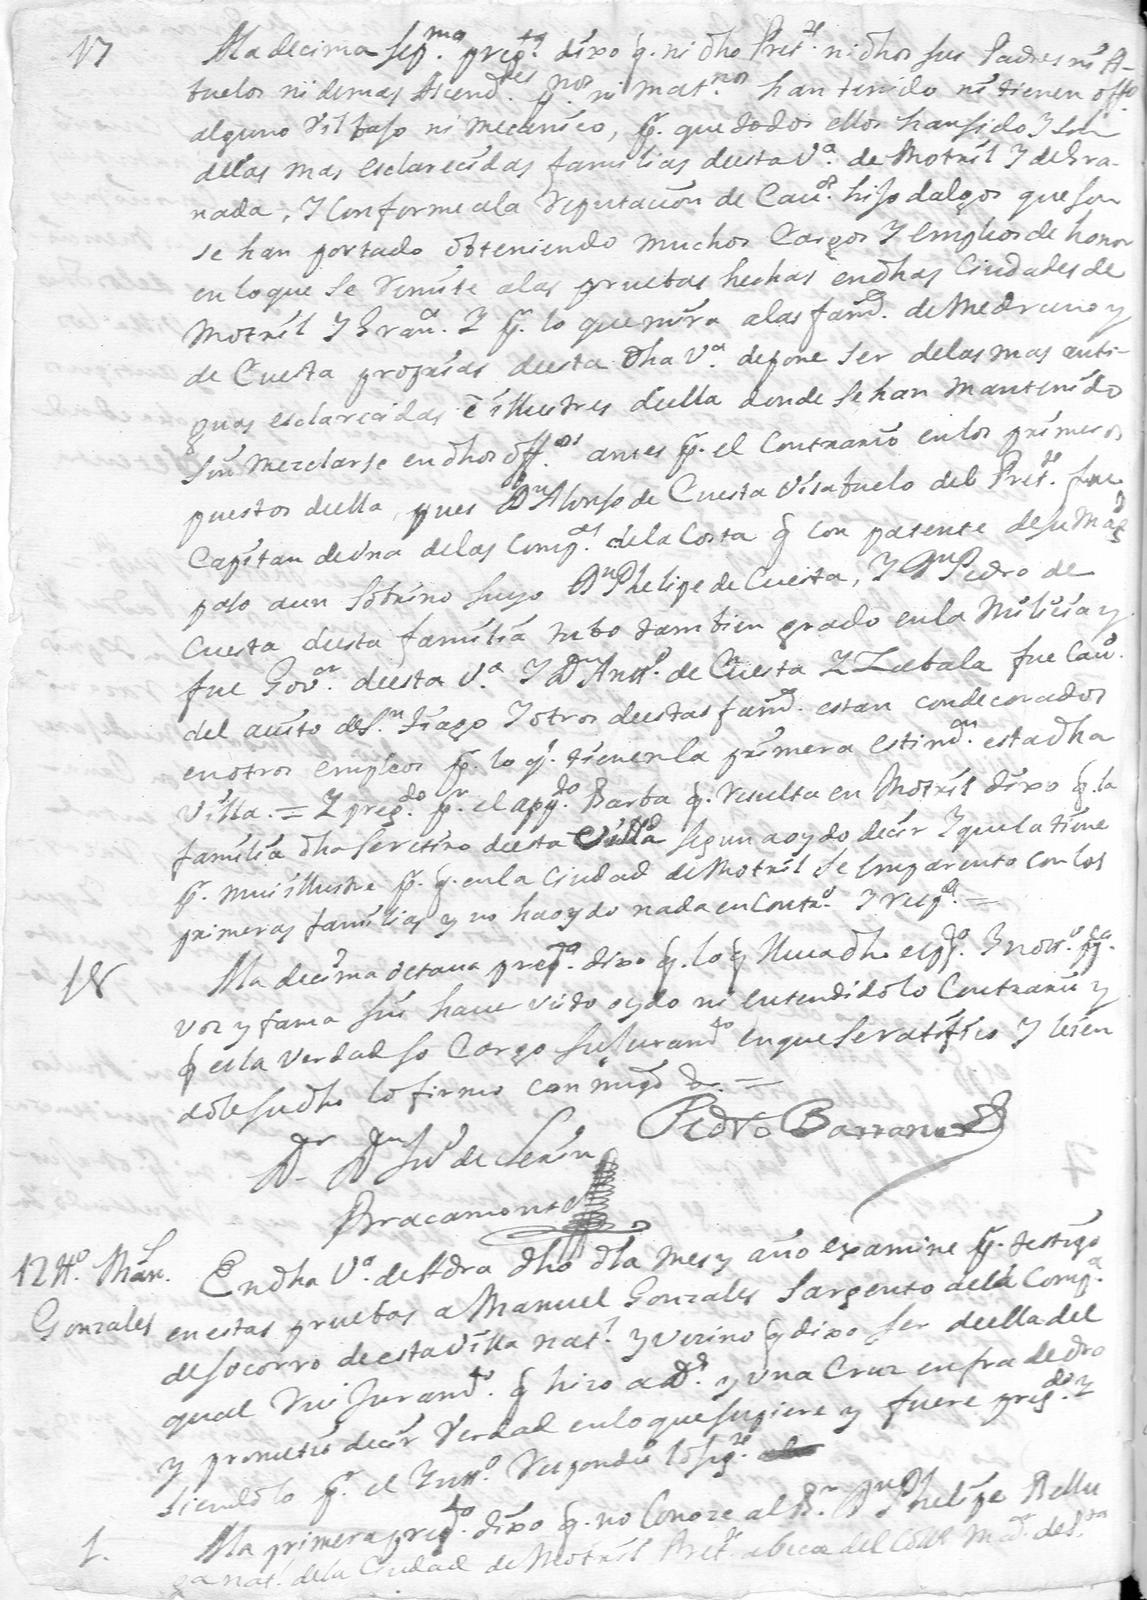 17 A la decima sep.ma preg.ta dixo q. ni dho Pret.te ni dhos sus Padres ni A-
buelos ni demas Ascend.tes p.nos ni mat.nos han tenido ni tienen off.o
alguno vil bajo ni mecanico, p. que todos ellos han sido y son
de las mas esclarecidas familias de esta V.a de Motril y de Gra-
nada, y conforme a la reputacion de Cau.os hijosdalgos que son
se han portado obteniendo muchos Cargos y Empleos de honor
en lo que se remite a las pruebas hechas en dhas Ciudades de
Motril y Gran.a Y p. lo que mira a las fam.s de Medrano y
de Cuesta propias de esta dha V.a depone ser de las mas anti-
guas esclarecidas e illustres de ella donde se han mantenido
sin mezclarse en dhos off.os antes p. el Contrario en los primeros
puestos de ella, pues Dn Alonso de Cuesta visabuelo del Pret.te fue
Capitan de una de las Comp.as de la Costa q con patente de su Mag.d
paso a un sobrino suyo Dn Phelipe de Cuesta, y Dn Pedro de
Cuesta de esta familia tubo tambien grado en la Milicia y
fue Gov.or de esta V.a y Dn Ant.o de Cuesta Y Zabala fue Cau.o
del auito de S.n Tiago y otros de estas fam.s estan condecorados
en otros empleos p. lo q. tienen la primera estim.on en esta dha
Villa. = Y preg.do p.r el app.do Barba q. resulta en Motril dixo q. la
familia dha ser etino de esta Villa segun a oydo decir y que la tiene
p. mui illustre p. q. en la Ciudad de Motril se emparento con los
primeras familias y no ha oydo nada en Contr.o y resp.de =
18 A la decima octava preg.ta dixo q. lo q lleua dho es p.co y not.o p.ca
voz y fama sin hauer visto oydo ni entendido lo Contrario y
q es la verdad so Cargo su Juram.to en que se ratifico y leien
dole su dho lo firmo conmigo &. =
Pedro Barranco
Dr Dn Ju.o de Leiva
Bracamonte
12 tt.o Man.l
Gonzales
En dha V.a de Adra dho dia Mes y año examine p. testigo
en estas pruebas a Manuel Gonzales Sargento de la Comp.a
de socorro de esta Villa nat.l y vezino q dixo ser de ella del
qual rui Juram.to q hizo a D.s y una Cruz en fra de dro
y prometio decir Verdad en lo que supiere y fuere preg.do Y
siendolo p. el Ynt.o respondio lo sig.te
1. A la primera preg.ta dixo q. no Conoze al D.r Dn Phelipe Bellu
ga nat.l de la Ciudad de Motril Pret.te a beca del Cole M.or de S.ta